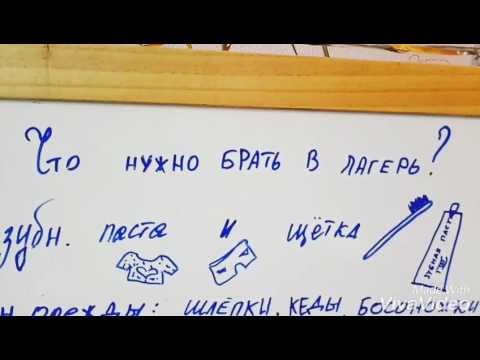 Что нужно брать в лагерь?
зубн. паста и щётка
ЗУБНАЯ ПАСТА
одежды: шлёпки, кеды, босоножки
Made With
VivaVideo